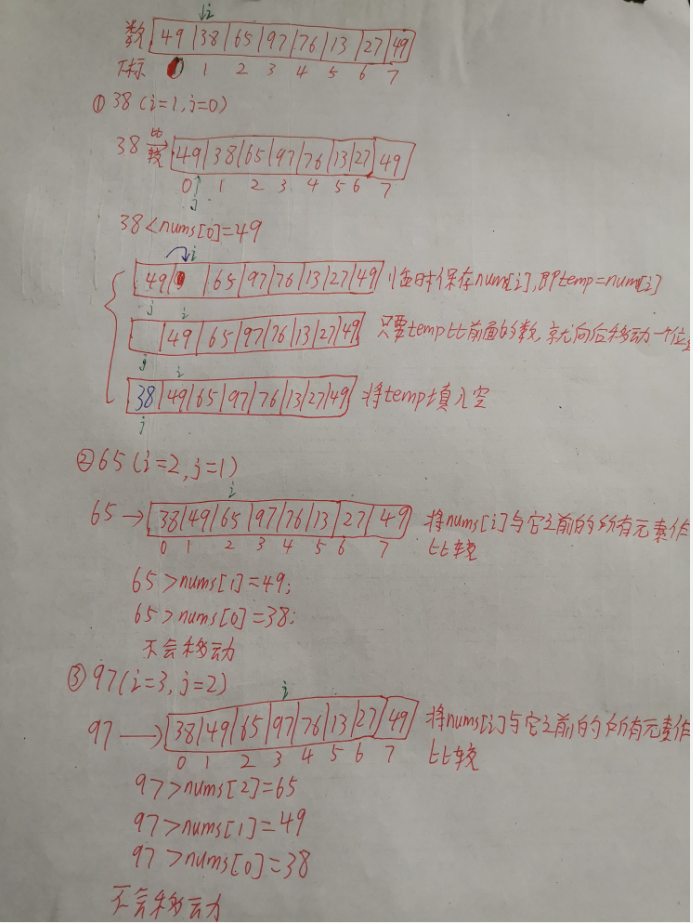 i
数 49 38 65 97 76 13 27 49
下标 0 1 2 3 4 5 6 7
① 38 (i=1,j=0)
38 比较 → 49 38 65 97 76 13 27 49
0 1 2 3 4 5 6 7
j
38<nums[0]=49
i
49 65 97 76 13 27 49 临时保存nums[i],即temp=nums[i]
j i
49 65 97 76 13 27 49 只要temp比前面的数 就向后移动一个位
j i
38 49 65 97 76 13 27 49 将temp填入空
j
② 65 (i=2,j=1)
i
65 → 38 49 65 97 76 13 27 49 将nums[i]与它之前的所有元素作
0 1 2 3 4 5 6 7 比较
65>nums[1]=49;
65>nums[0]=38;
不会移动
③ 97(i=3,j=2)
i
97 → 38 49 65 97 76 13 27 49 将nums[i]与它之前的所有元素作
0 1 2 3 4 5 6 7 比较
97>nums[2]=65
97>nums[1]=49
97>nums[0]=38
不会移动